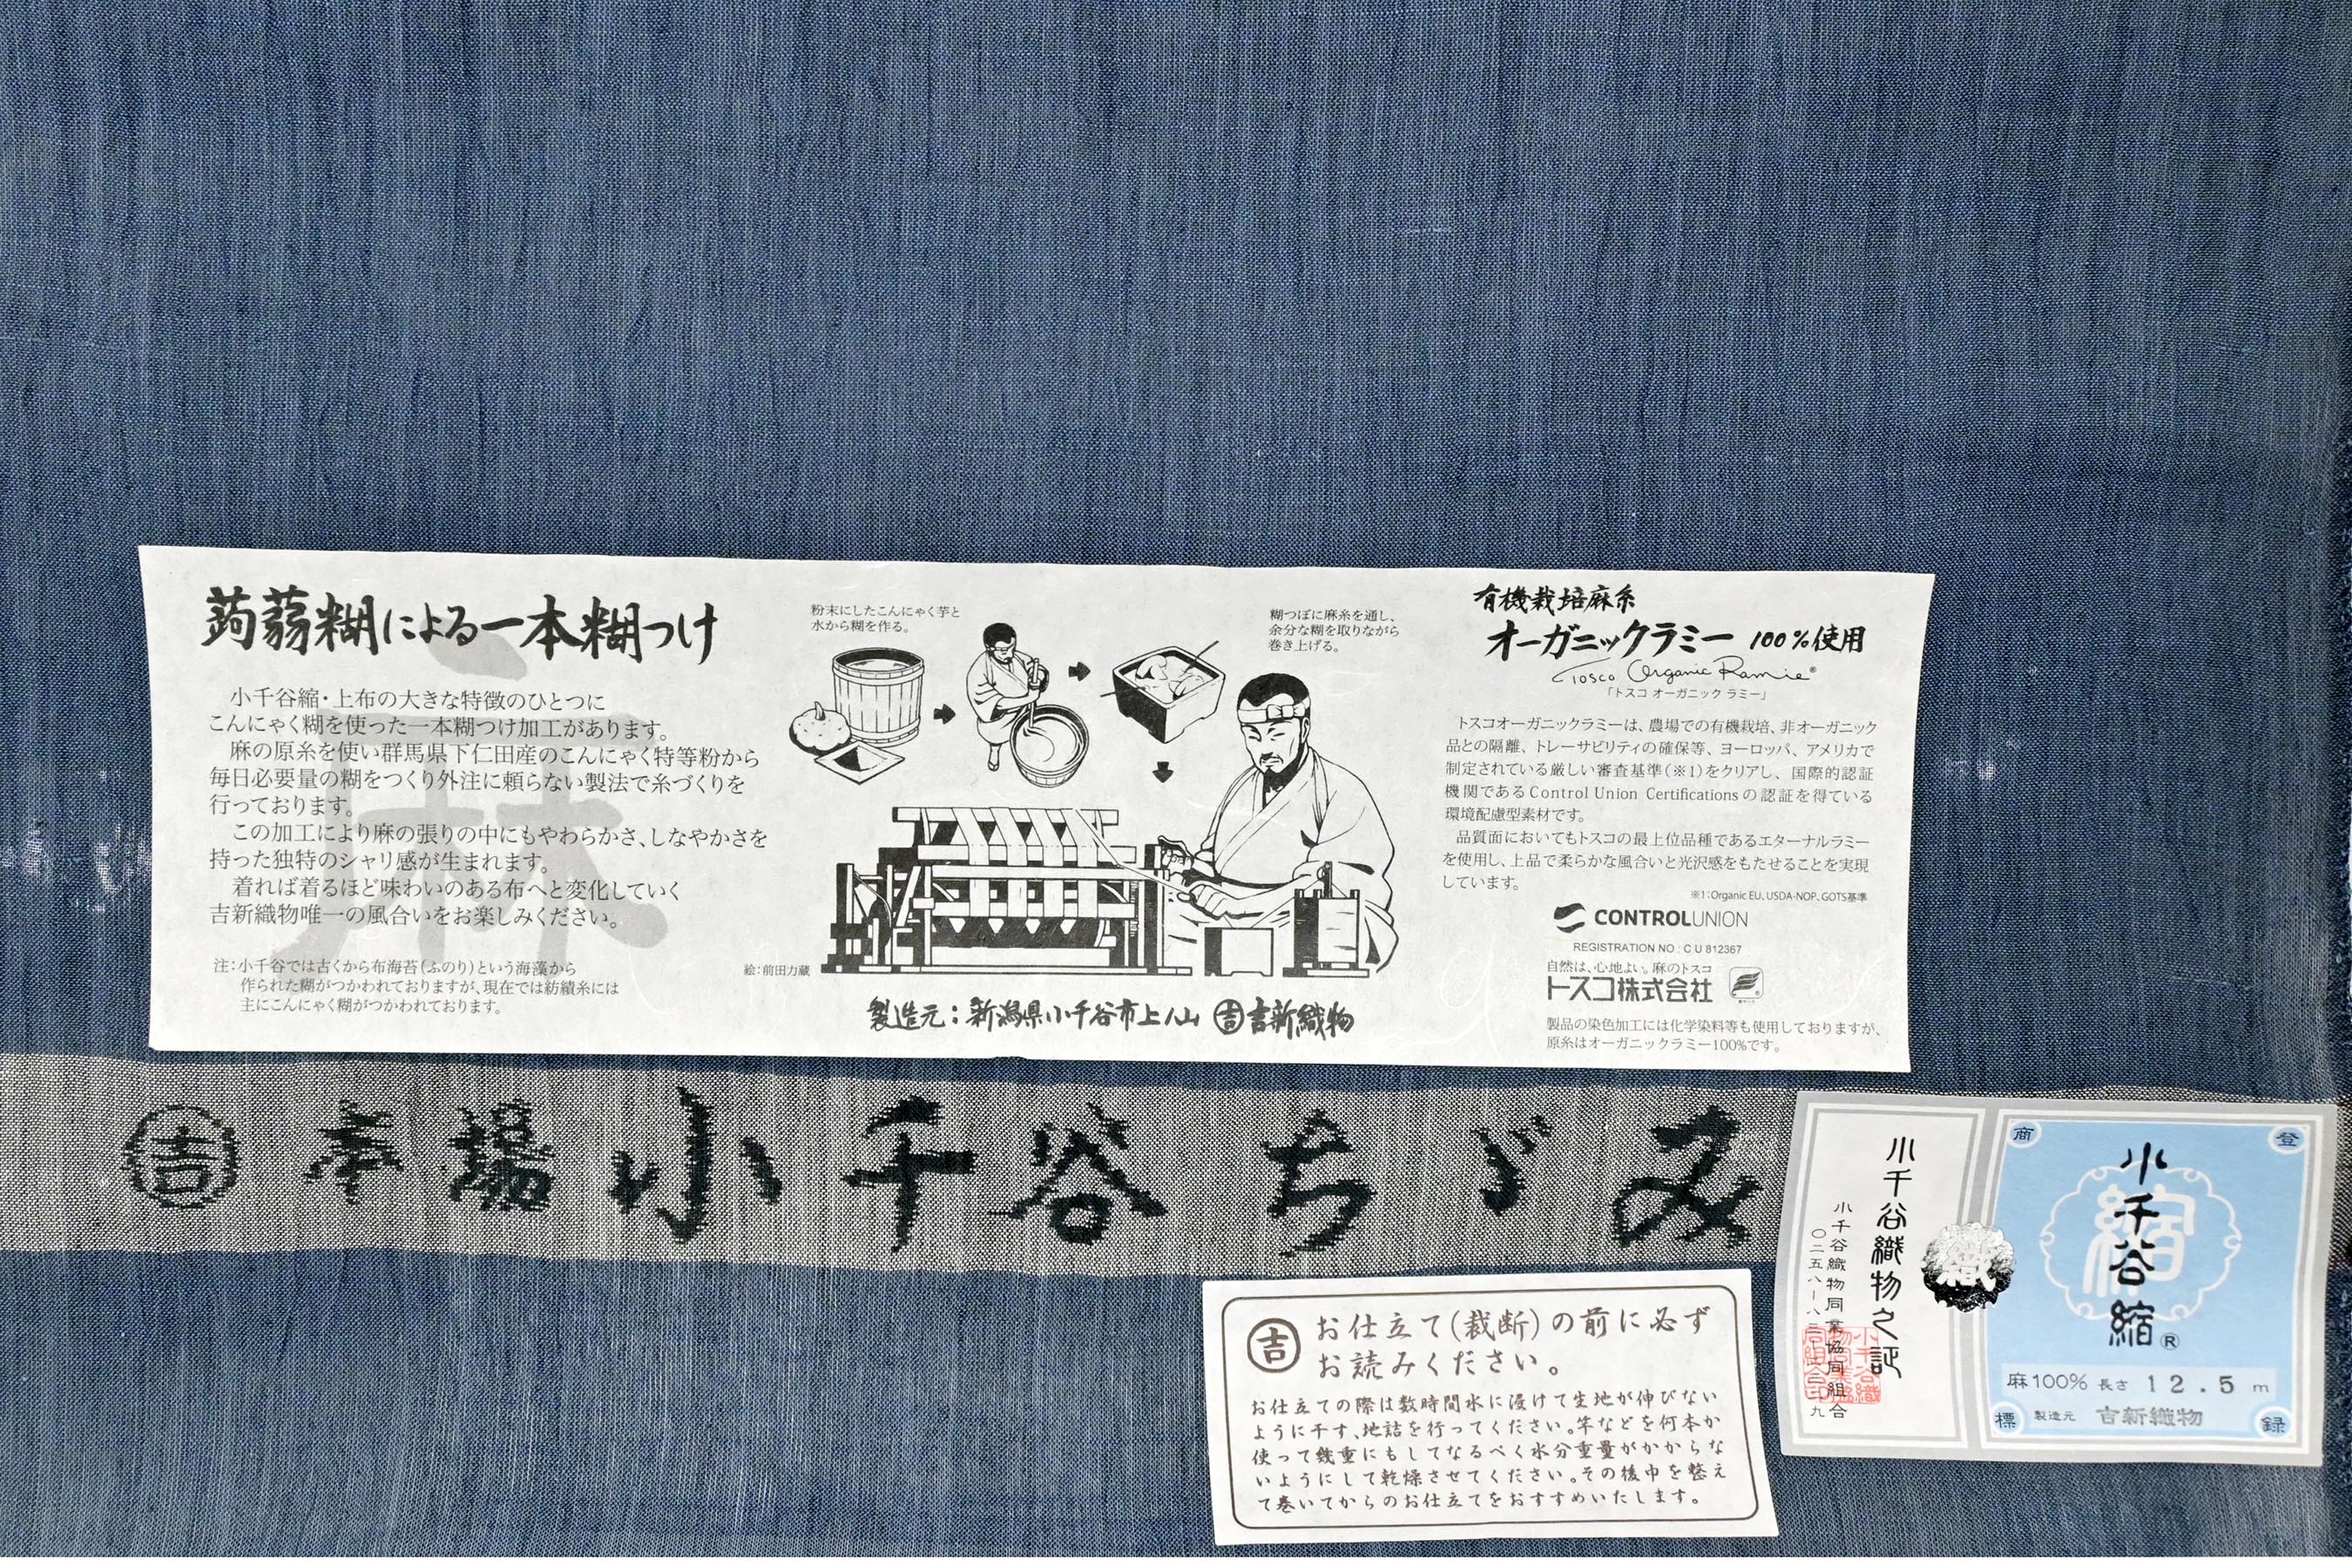 蒟蒻糊による一本糊つけ
小千谷縮・上布の大きな特徴のひとつに
こんにゃく糊を使った一本糊つけ加工があります。
麻の原糸を使い群馬県下仁田産のこんにゃく特等粉から
毎日必要量の糊をつくり外注に頼らない製法で糸づくりを
行っております。
この加工により麻の張りの中にもやわらかさ、しなやかさを
持った独特のシャリ感が生まれます。
着れば着るほど味わいのある布へと変化していく
吉新織物唯一の風合いをお楽しみください。
麻
注:小千谷では古くから布海苔(ふのり)という海藻から
作られた糊がつかわれておりますが、現在では紡績糸には
主にこんにゃく糊がつかわれております。
粉末にしたこんにゃく芋と
水から糊を作る。
糊つぼに麻糸を通し、
余分な糊を取りながら
巻き上げる。
絵:前田力蔵
製造元:新潟県小千谷市上ノ山 吉 吉新織物
有機栽培麻糸
オーガニックラミー 100%使用
Tosco Organic Ramie®
「トスコ オーガニック ラミー」
トスコオーガニックラミーは、農場での有機栽培、非オーガニック
品との隔離、トレーサビリティの確保等、ヨーロッパ、アメリカで
制定されている厳しい審査基準(※1)をクリアし、国際的認証
機関であるControl Union Certificationsの認証を得ている
環境配慮型素材です。
品質面においてもトスコの最上位品種であるエターナルラミー
を使用し、上品で柔らかな風合いと光沢感をもたせることを実現
しています。
※1:Organic EU、USDA-NOP、GOTS基準
CONTROLUNION
REGISTRATION NO : C U 812367
自然は、心地よい。麻のトスコ
トスコ株式会社
製品の染色加工には化学染料等も使用しておりますが、
原糸はオーガニックラミー100%です。
吉 本場小千谷ちゞみ
吉 お仕立て(裁断)の前に必ず
お読みください。
お仕立ての際は数時間水に浸けて生地が伸びない
ように干す、地詰を行ってください。竿などを何本か
使って幾重にもしてなるべく水分重量がかからな
いようにして乾燥させてください。その後巾を整え
て巻いてからのお仕立てをおすすめいたします。
小千谷織物之証
小千谷織物同業協同組合
織
商
登
標
録
縮
小千谷縮®
麻100% 長さ 12.5 m
製造元 吉新織物